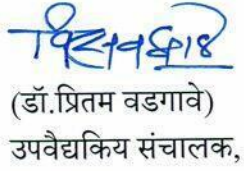 (डॉ.प्रितम वडगावे)
उपवैद्यकिय संचालक,